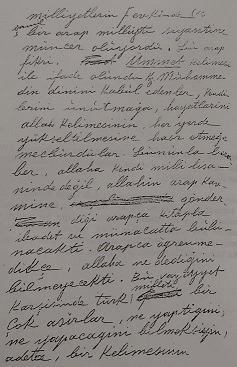 milliyetlerin fevkinde, şamil
bir arap milliyeti siyasetine
müncer oluyordu. Bu arap
fikri, Ümmet kelimesi
ile ifade olundu. Muhamme-
din dinini kabul edenler, kendi-
lerini unutmağa, hayatlarını
allah kelimesinin, her yerde
yükseltilmesine hasretmeğe
mecburdular. Bununla be-
ber, allaha kendi milli lisa-
nında değil, allahın arap kav-
mine, gönder-
diği arapça kitapla
ibadet ve münacatta bulu-
nacaktı. Arapça öğrenme-
dikçe, allaha ne dediğini
bilmeyecekti. Bu vaziyet
karşısında türk milleti bir
çok asırlar, ne yaptığını,
ne yapacağını bilmeksizin,
adeta, bir kelimesinin